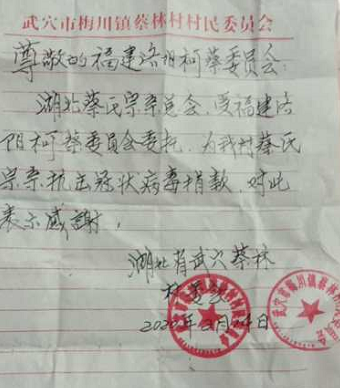 武穴市梅川镇蔡林村村民委员会
尊敬的福建洛阳柯蔡委员会:
湖北蔡氏宗亲总会,受福建洛
阳柯蔡委员会委托,为我村蔡氏
宗亲抗击冠状病毒捐款,对此
表示感谢,
湖北省武穴蔡林
村委会
2020年2月24日